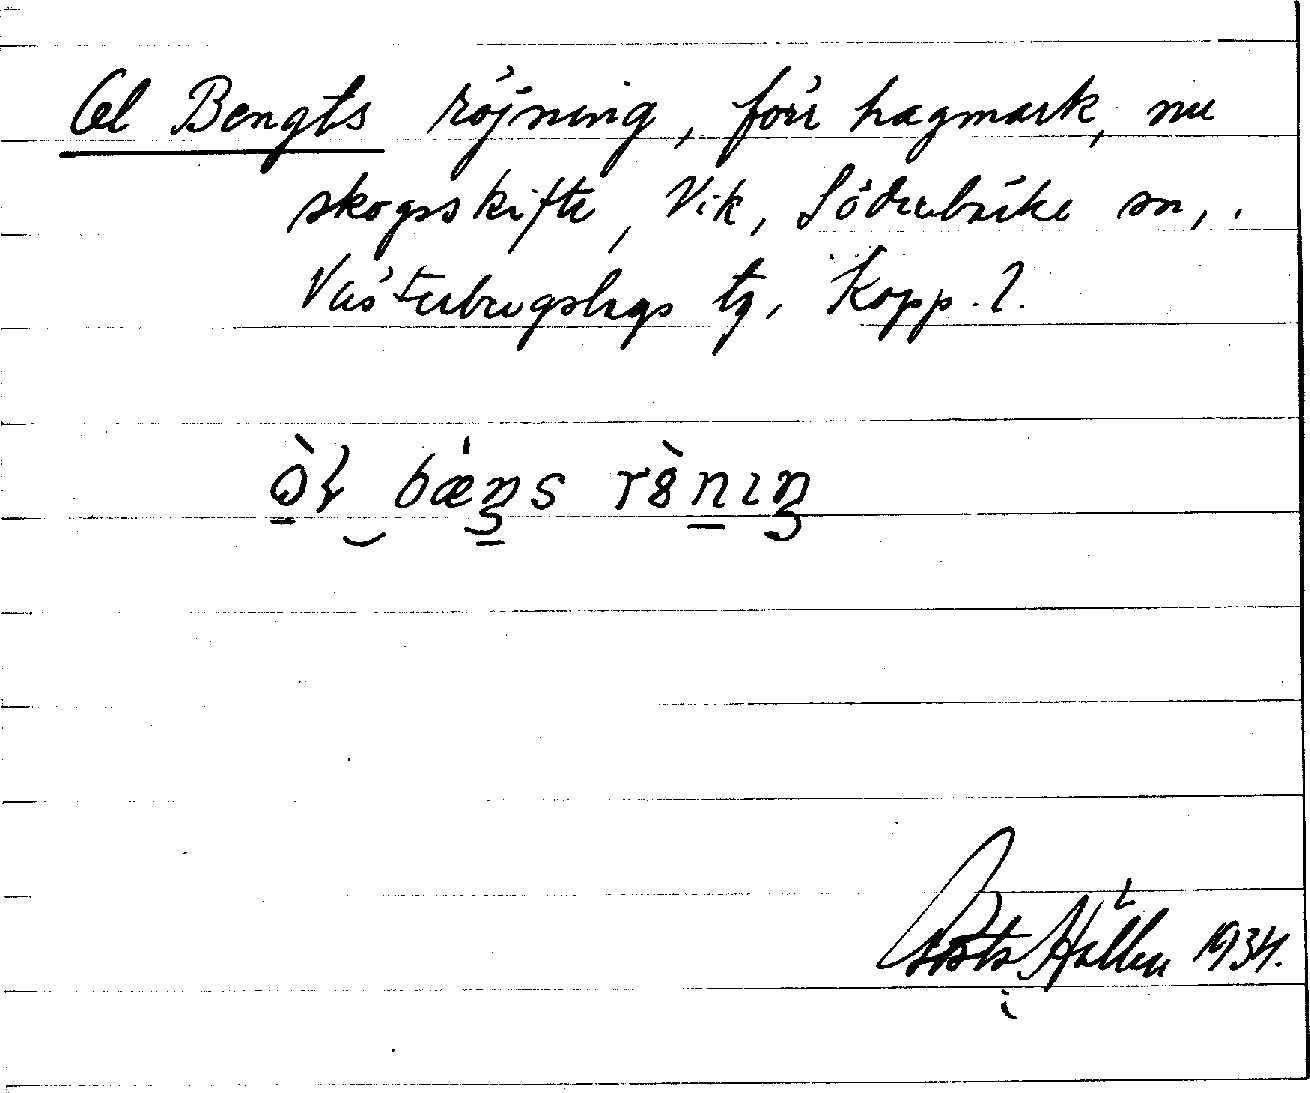 Ol Bengts röjning, förr hagmark, nu
skogsskifte, Vik, Söderbärke sn,
Västerbergslags tg, Kopp. l.
ò̱ł bǽŋs rö̀nıŋ
Gösta Hallén 1934.